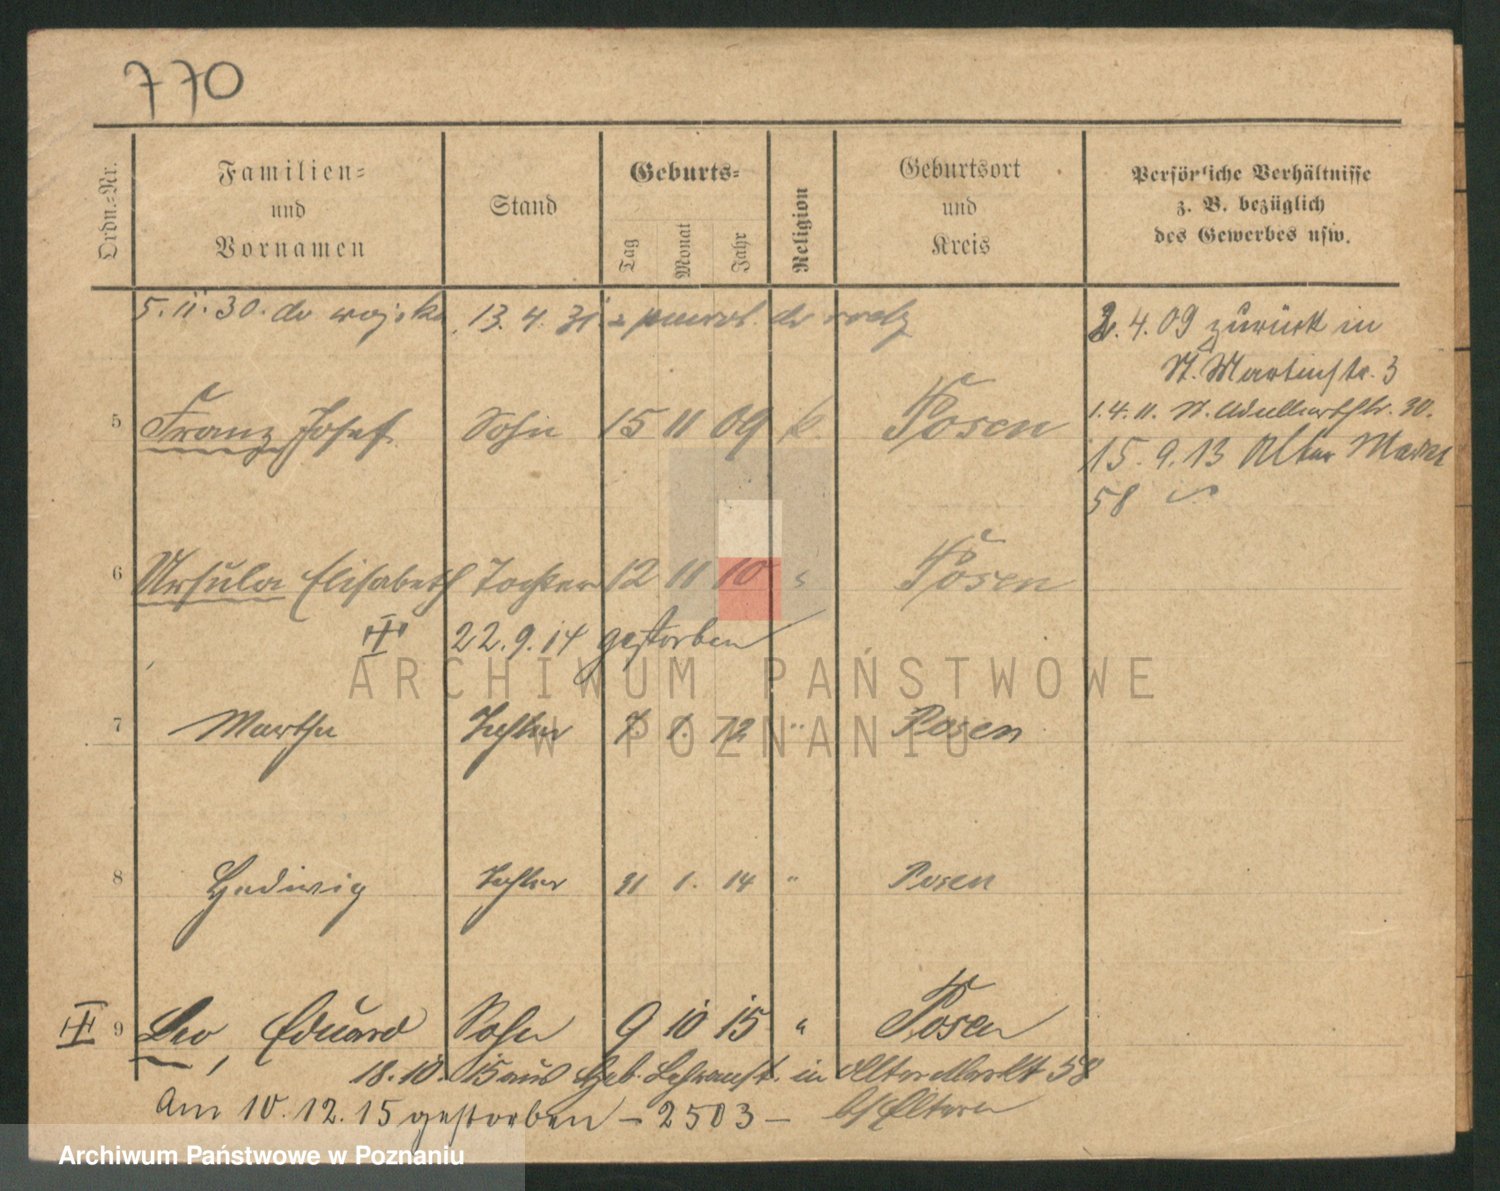 770
Ordn.=Nr.
Familien= und Vornamen
Stand
Geburts=
Tag
Monat
Jahr
Religion
Geburtsort und Kreis
Persönliche Verhältnisse z. B. bezüglich des Gewerbes usw.
5.11.30. do wojska 13.4.31. z powrot. do rodz
2.4.09 zurück in
St. Martinstr. 3
5 Franz Josef Sohn 15 11 09 k. Posen
1.4.11. St. Adalbertstr. 30.
15.9.13 Alter Markt
58
6 Ursula Elisabeth Tochter 12 11 10 " Posen
22.9.14 gestorben
7 Martha Tochter 7. 1. 12 " Posen
8 Hedwig Tochter 21 1. 14 " Posen
9 Leo, Eduard Sohn 9 10 15 " Posen
18.10.15 aus Heb. Lehranst. in Alter Markt 58
b/ Eltern
Am 10.12.15 gestorben – 2503 –
ARCHIWUM PAŃSTWOWE
W POZNANIU
Archiwum Państwowe w Poznaniu